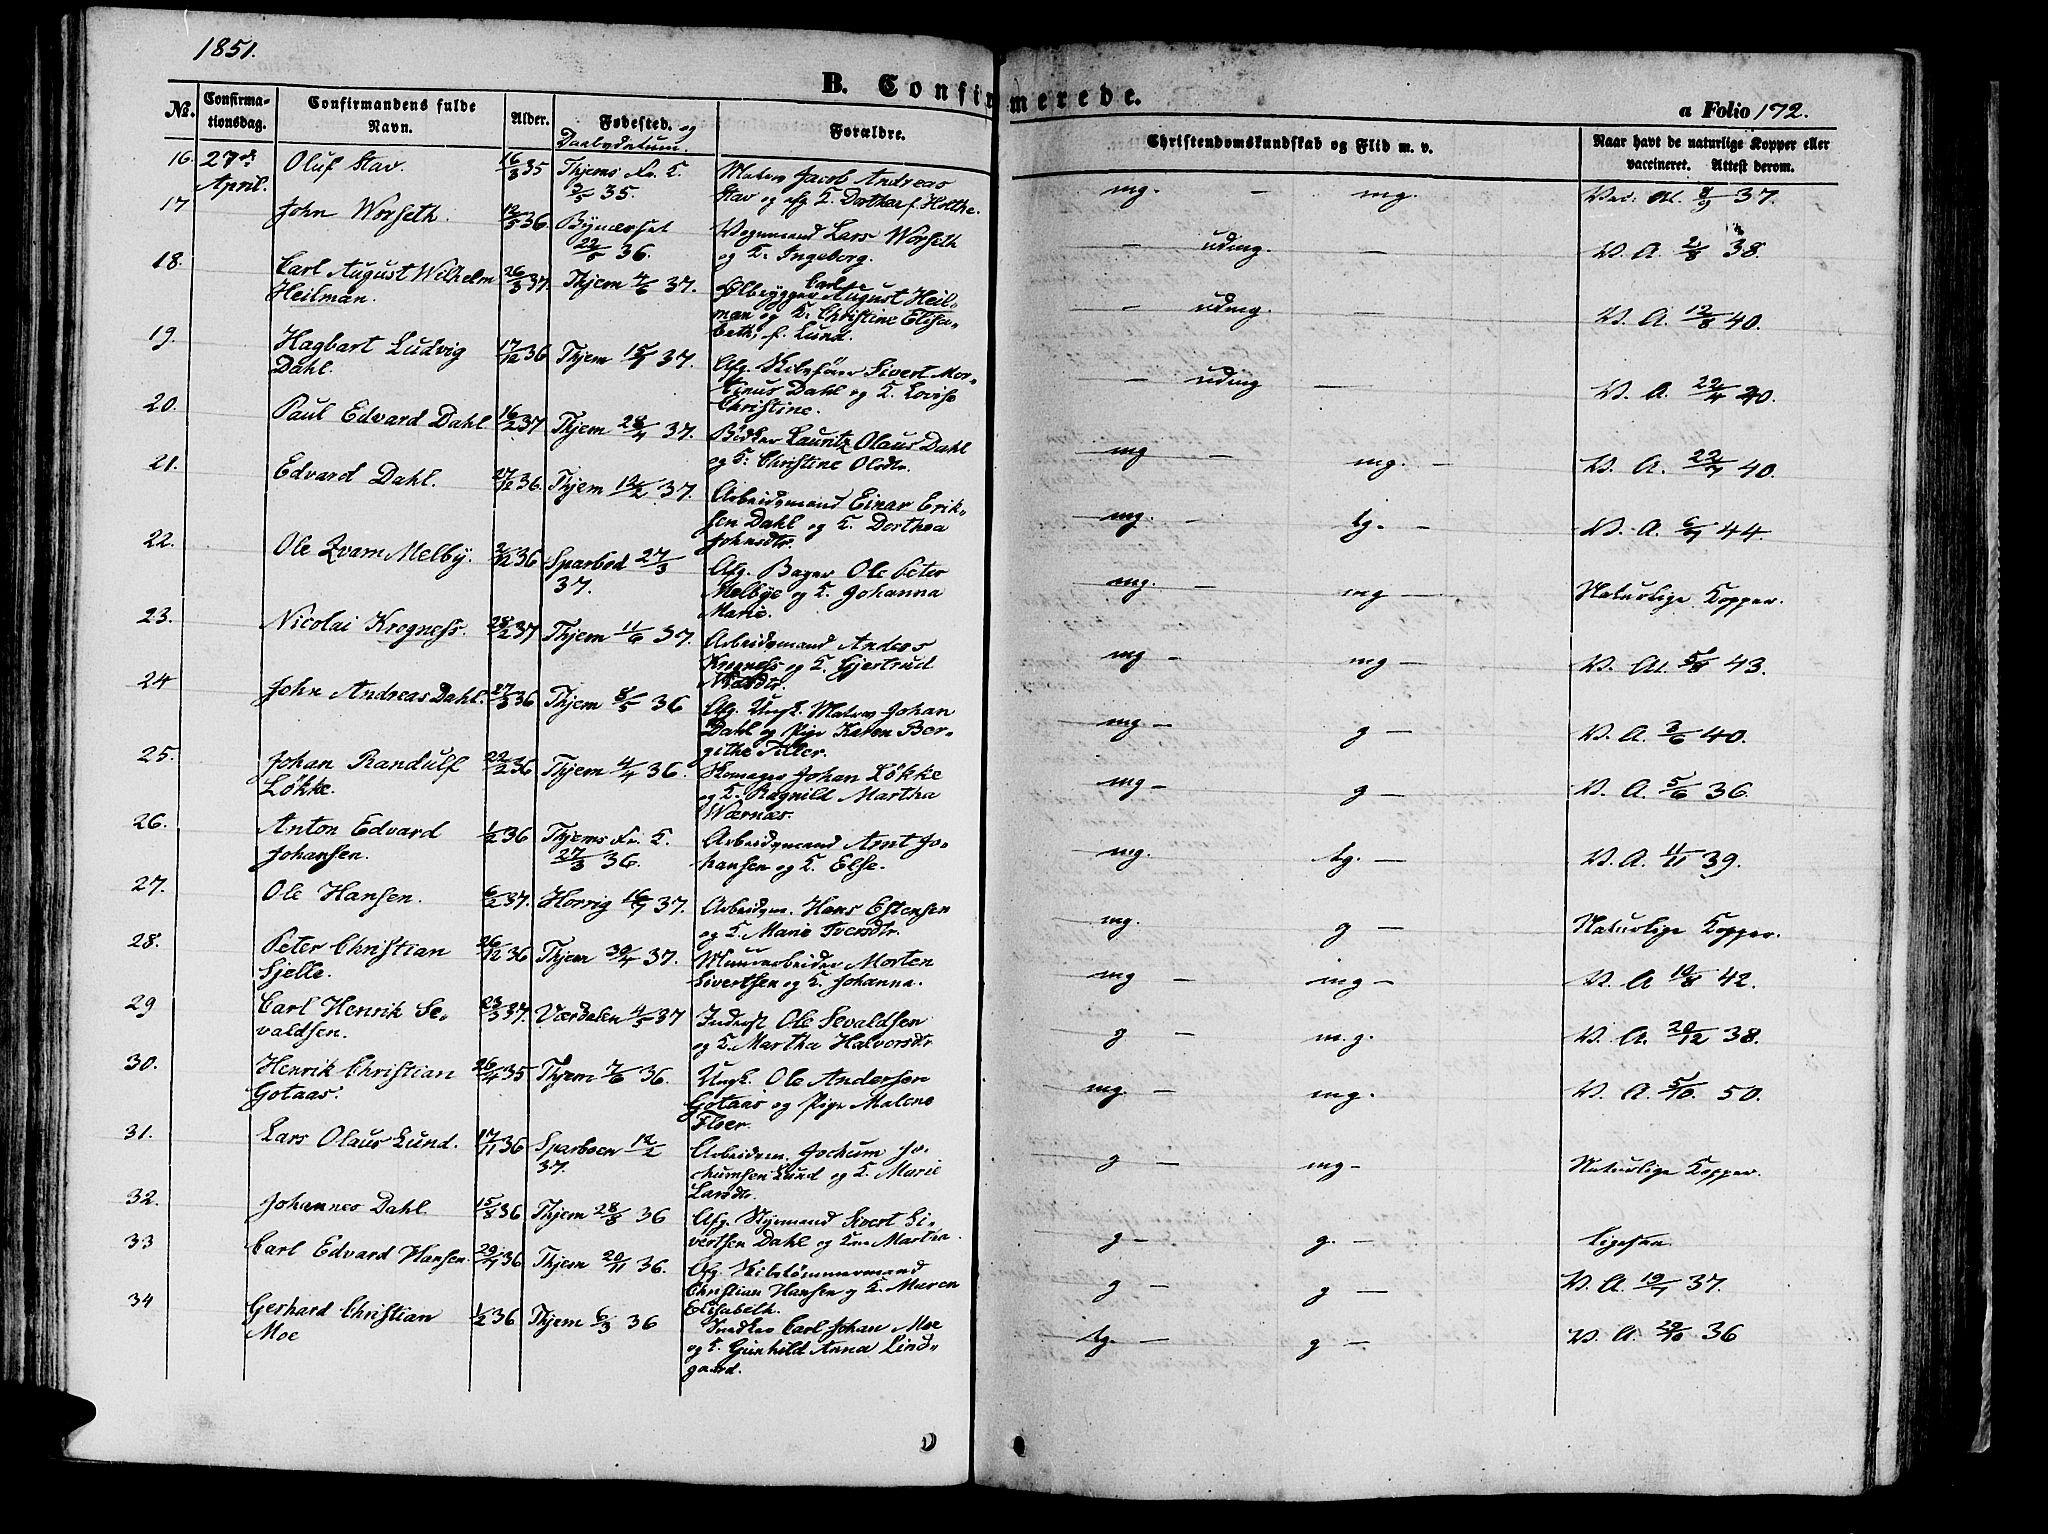 1851.
B. Confirmerede.
a Folio 172.
No. Confirmationsdag. Confirmandens fulde Navn. Alder. Fødested. og Daabsdatum. Forældre. Christendomskundskab og Flid m. v. Naar havt de naturlige Kopper eller vaccineret. Attest derom.
16. 27de April. Oluf Stav. 16/3 35 Thjems Fr. K. 3/5 35. Matros Jacob Andreas
Stav og afg. K. Dorthea f. Holthe. mg. - mg. Vac. At. 8/9 37.
17 John Worseth. 12/5 36. Bynæsset 22/5 36. Vognmand Lars Worseth
og K. Ingeborg. - udmg. - V. A. 2/8 38.
18. Carl August Wilhelm
Heilman. 26/3 37. Thjem 4/6 37. Ølbrygger Carl August Heil-
man og K. Christine Elisa-
beth, f. Lund. - udmg. - V. A. 12/8 40.
19. Hagbart Ludvig
Dahl. 17/12 36 Thjem 15/1 37. Afg. Skibsfører Sivert Mor-
tinus Dahl og K. Lovise
Christine. - udmg - V. A. 22/4 40.
20. Paul Edvard Dahl 16/2 37 Thjem 28/4 37. Bødker Lauritz Olaus Dahl
og K. Christine Olsdtr. mg - mg. - V. A. 22/4 40.
21. Edvard Dahl. 27/12 36. Thjem 12/2 37. Arbeidsmand Einar Erik-
sen Dahl og K. Dorthea
Johnsdtr. mg. - tg. - V. A. 6/7 44.
22. Ole Zvam Melby. 2/12 36 Sparbod 27/3
37. Afg. Bager Ole Peter
Melbye og K. Johanna
Marie. mg. - mg - Naturlige Kopper.
23. Nicolai Krogness. 28/2 37 Thjem 11/6 37. Arbeidsmand Anders
Krogness og K. Gjertrud
mg - mg - V. At. 5/8 43.
24 John Andreas Dahl. 27/3 36 Thjem 8/5 36 Afg. Ungk. Matros Johan
Dahl og Pige Karen Ber-
githe Tiller. mg - g - V. A. 3/6 40.
25. Johan Randulf
Løkke. 22/2 36 Thjem 4/4 36. Skomager Johan Løkke
og K. Ragnild Martha
Wærnæs. mg - g - V. A. 5/6 36.
26. Anton Edvard
Johansen. 1/2 36 Thjems Fr. K.
27/3 36. Arbeidsmand Arnt Jo-
hansen og K. Else. mg. tg. - V. A. 11/11 39.
27. Ole Hansen. 6/2 37. Horrig 16/7 37. Arbeidsm. Hans Estensen
og K. Marie Iversdtr. mg. g - Naturlige Kopper.
28. Peter Christian
Sjelle. 26/12 36 Thjem 30/4 37. Muurarbeider Morten
Sivertsen og K. Johanna. mg - mg - V. A 14/8 42.
29 Carl Henrik Se-
valdsen. 23/3 37. Værdalen 4/5 37 Inderst Ole Sevaldsen
og K. Martha Halvorsdtr g - m.g. V. A. 20/12 38.
30. Henrik Christian
Gotaas. 26/4 35 Thjem 7/6 36. Ungk. Ole Andersen
Gotaas og Pige Malene
Floer. mg. - mg. V. A. 5/10 50.
31. Lars Olaus Lund. 17/11 36 Sparboen 12/2
37. Arbeidsm. Jochum Jo-
chumsen Lund og K. Marie
Larsdtr. g - mg - Naturlige Kopper.
32. Johannes Dahl 15/8 36 Thjem 28/8 36 Afg. Styrmand Sivert Si-
vertsen Dahl og Kone Martha. g - g. - ligesaa
33 Carl Edvard Hansen. 29/7 36 Thjem 20/11 36. Afg. Skibstømmermand
Christian Hansen og K. Maren
Elisabeth. g - g - V. A. 12/7 37.
34 Gerhard Christian
Moe 1/2 36 Thjem 6/3 36 Snedker Carl Johan Moe
og K. Gunhild Anna Lind-
gaard. tg. - g - V. A. 29/10 36